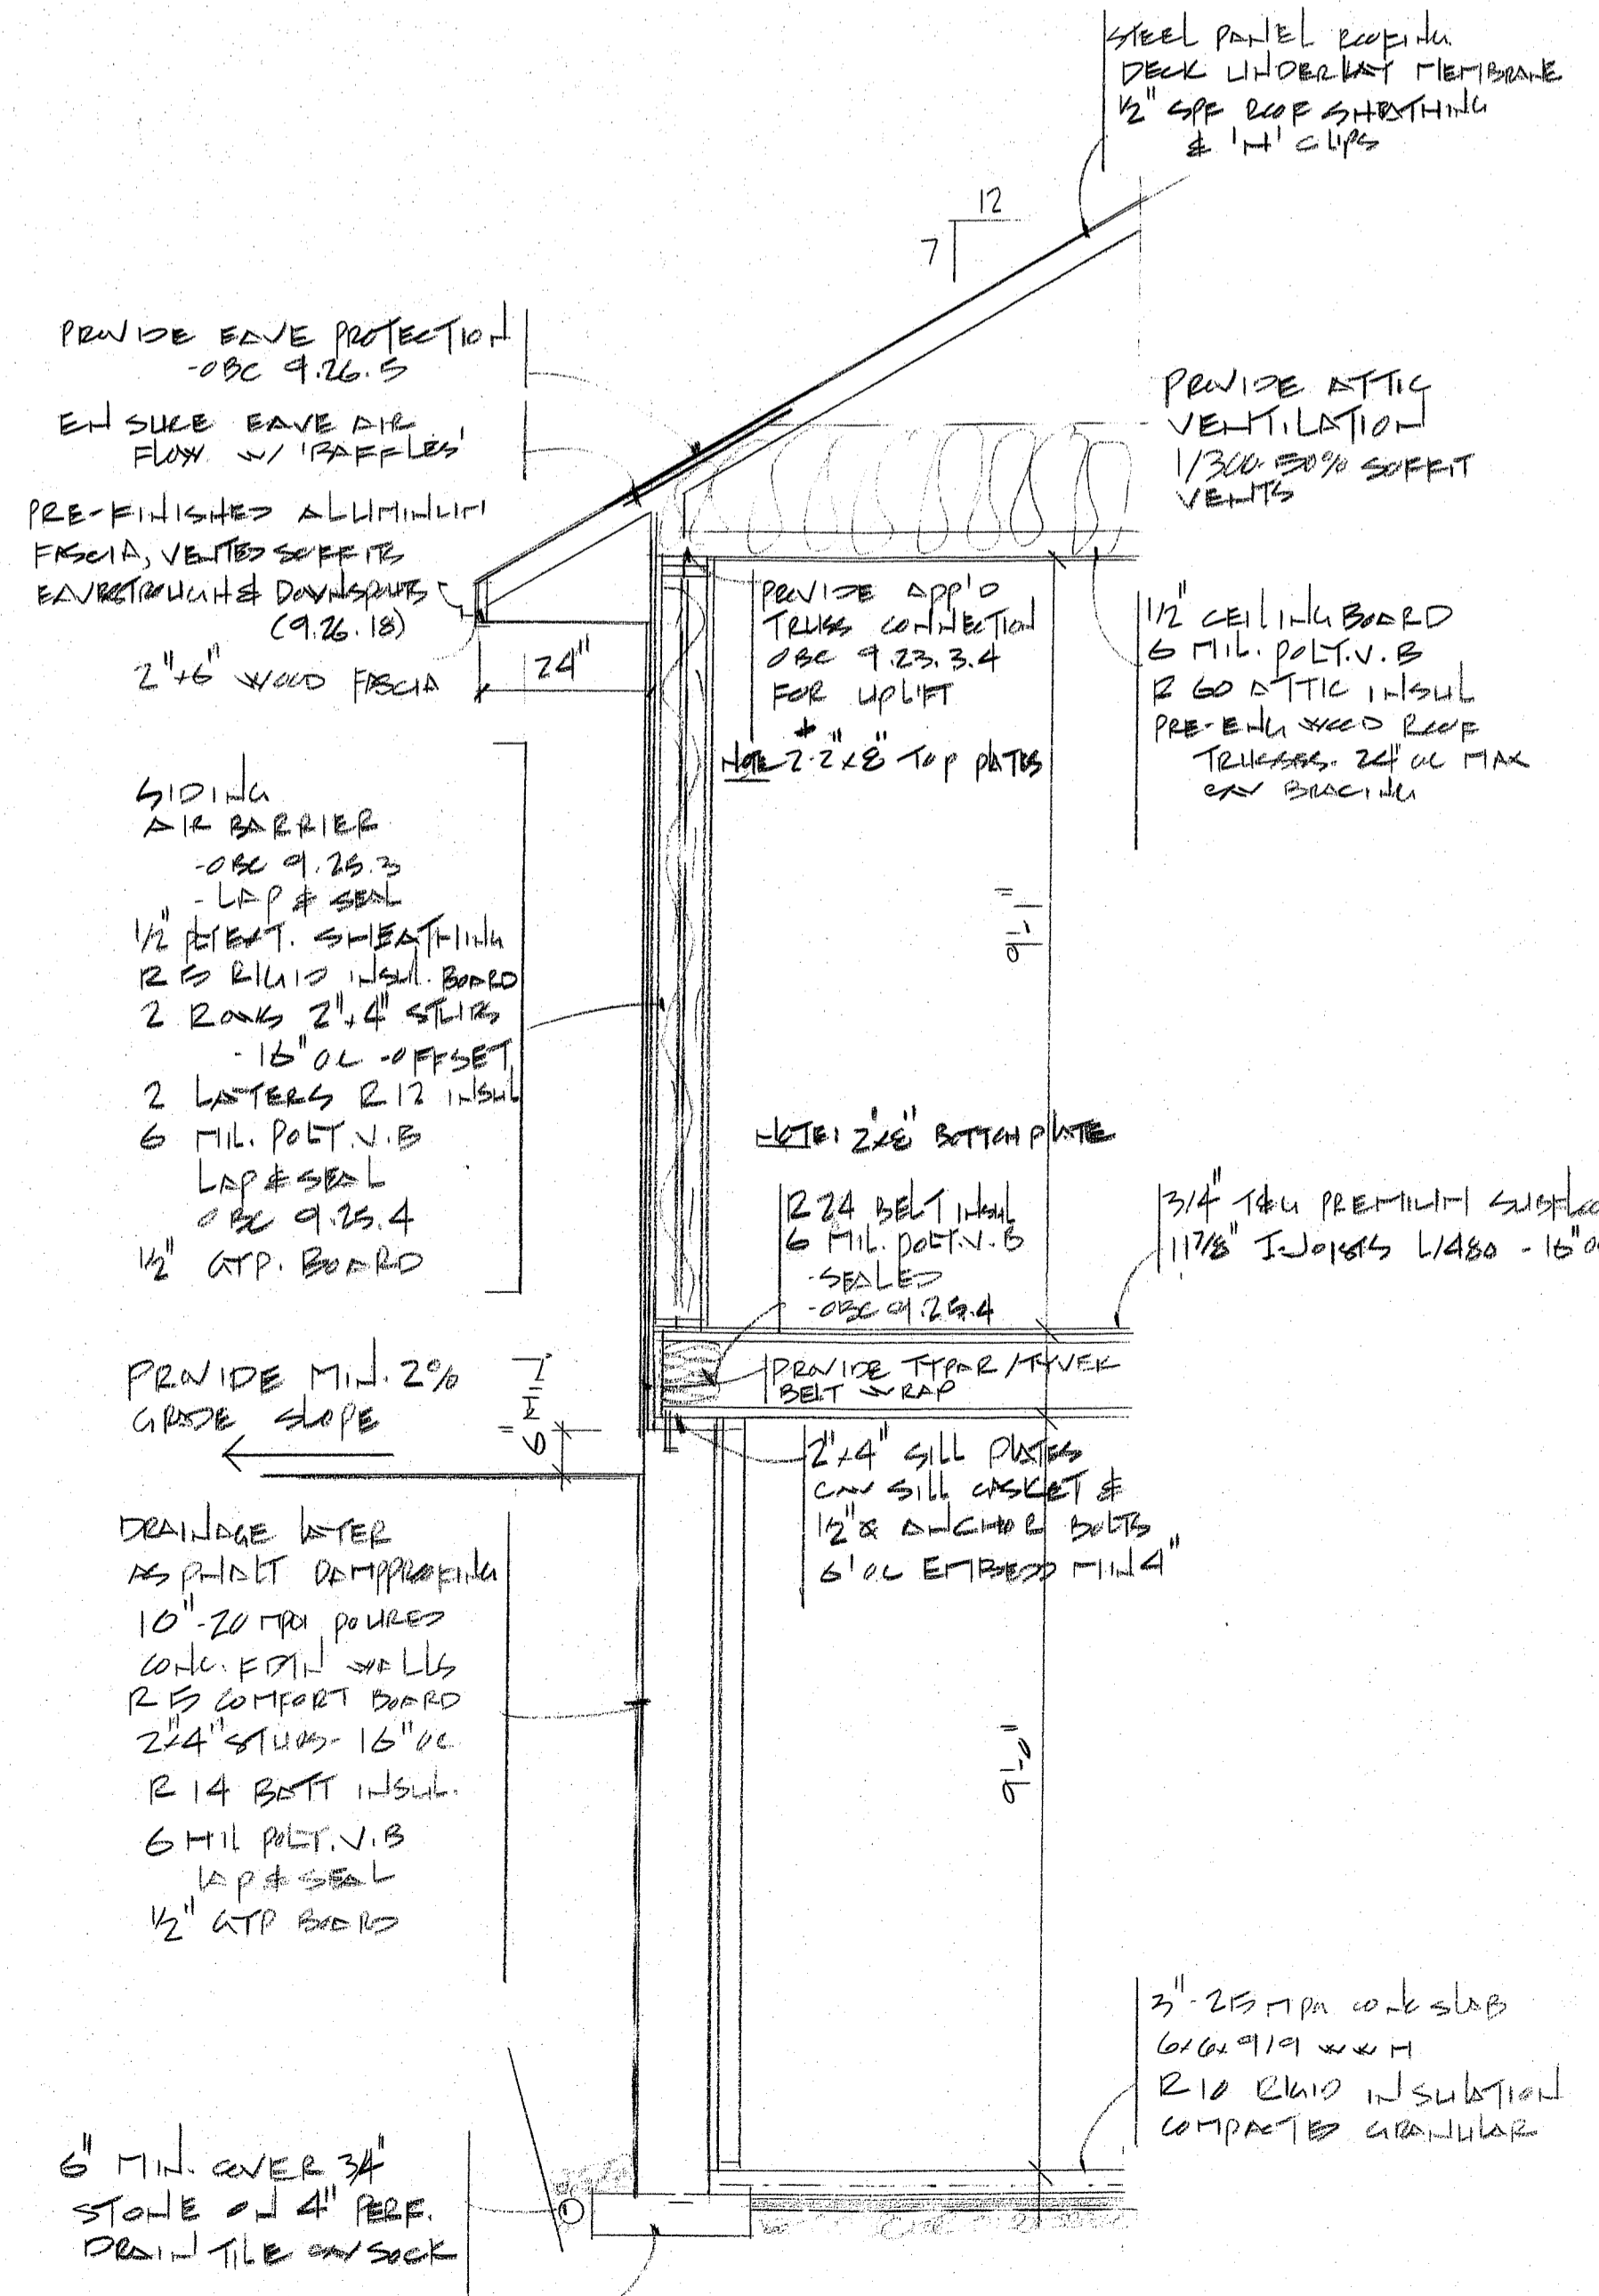 STEEL PANEL ROOFING
DECK UNDERLAY MEMBRANE
1/2" SPF ROOF SHEATHING
& 'H' CLIPS
12
7
PROVIDE EAVE PROTECTION
-OBC 9.26.5
ENSURE EAVE AIR
FLOW W/ 'BAFFLES'
PRE-FINISHED ALLUMINUM
FASCIA, VENTED SOFFITS
EAVESTROUGH & DOWNSPOUTS
(9.26.18)
2"x6" WOOD FASCIA
24"
PROVIDE ATTIC
VENTILATION
1/300-50% SOFFIT
VENTS
PROVIDE APP'D
TRUSS CONNECTION
OBC 9.23.3.4
FOR UPLIFT
NOTE 2-2"x8" TOP PLATES
1/2" CEILING BOARD
6 MIL. POLY.V.B
R 60 ATTIC INSUL
PRE-ENG WOOD ROOF
TRUSSES - 24" OC MAX
C/W BRACING
SIDING
AIR BARRIER
-OBC 9.25.3
- LAP & SEAL
1/2" EXT. SHEATHING
R 5 RIGID INSUL. BOARD
2 ROWS 2"x4" STUDS
- 16" OC - OFFSET
2 LAYERS R12 INSUL
6 MIL. POLY.V.B
LAP & SEAL
OBC 9.25.4
1/2" GYP. BOARD
9'-1"
NOTE: 2"x8" BOTTOM PLATE
R 24 BELT INSUL
6 MIL. POLY.V.B
-SEALED
-OBC 9.25.4
3/4" T&G PREMIUM SUBFLOO
11 7/8" I-JOISTS L/480 - 16" O
PROVIDE TYPAR/TYVEK
BELT WRAP
PROVIDE MIN. 2%
GRADE SLOPE
6" MIN.
2"x4" SILL PLATES
C/W SILL GASKET &
1/2"Ø ANCHOR BOLTS
6' OC EMBEDD MIN 4"
DRAINAGE LAYER
ASPHALT DAMPPROOFING
10"-20 MPa POURED
CONC. FDTN WALLS
R 5 COMFORT BOARD
2"x4" STUDS - 16" OC
R 14 BATT INSUL.
6 MIL POLY.V.B
LAP & SEAL
1/2" GYP BOARD
9'-0"
3"-25 MPa CONC SLAB
6x6x9/9 WWM
R 10 RIGID INSULATION
COMPACTED GRANULAR
6" MIN. COVER 3/4"
STONE ON 4" PERF.
DRAIN TILE C/W SOCK